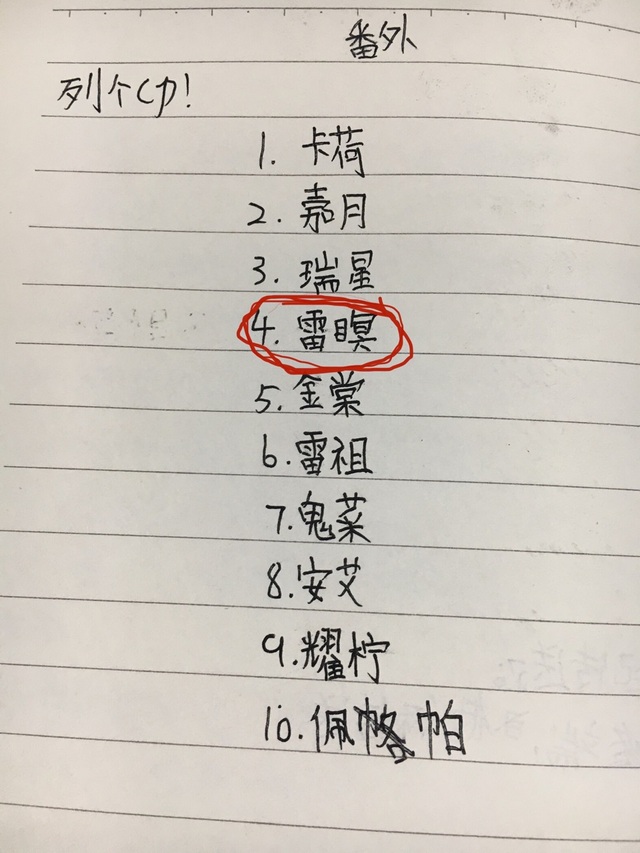 番外
列个CP!
1. 卡荷
2. 嘉月
3. 瑞星
4. 雷瞑
5. 金棠
6. 雷祖
7. 鬼菜
8. 安艾
9. 耀柠
10. 佩帕